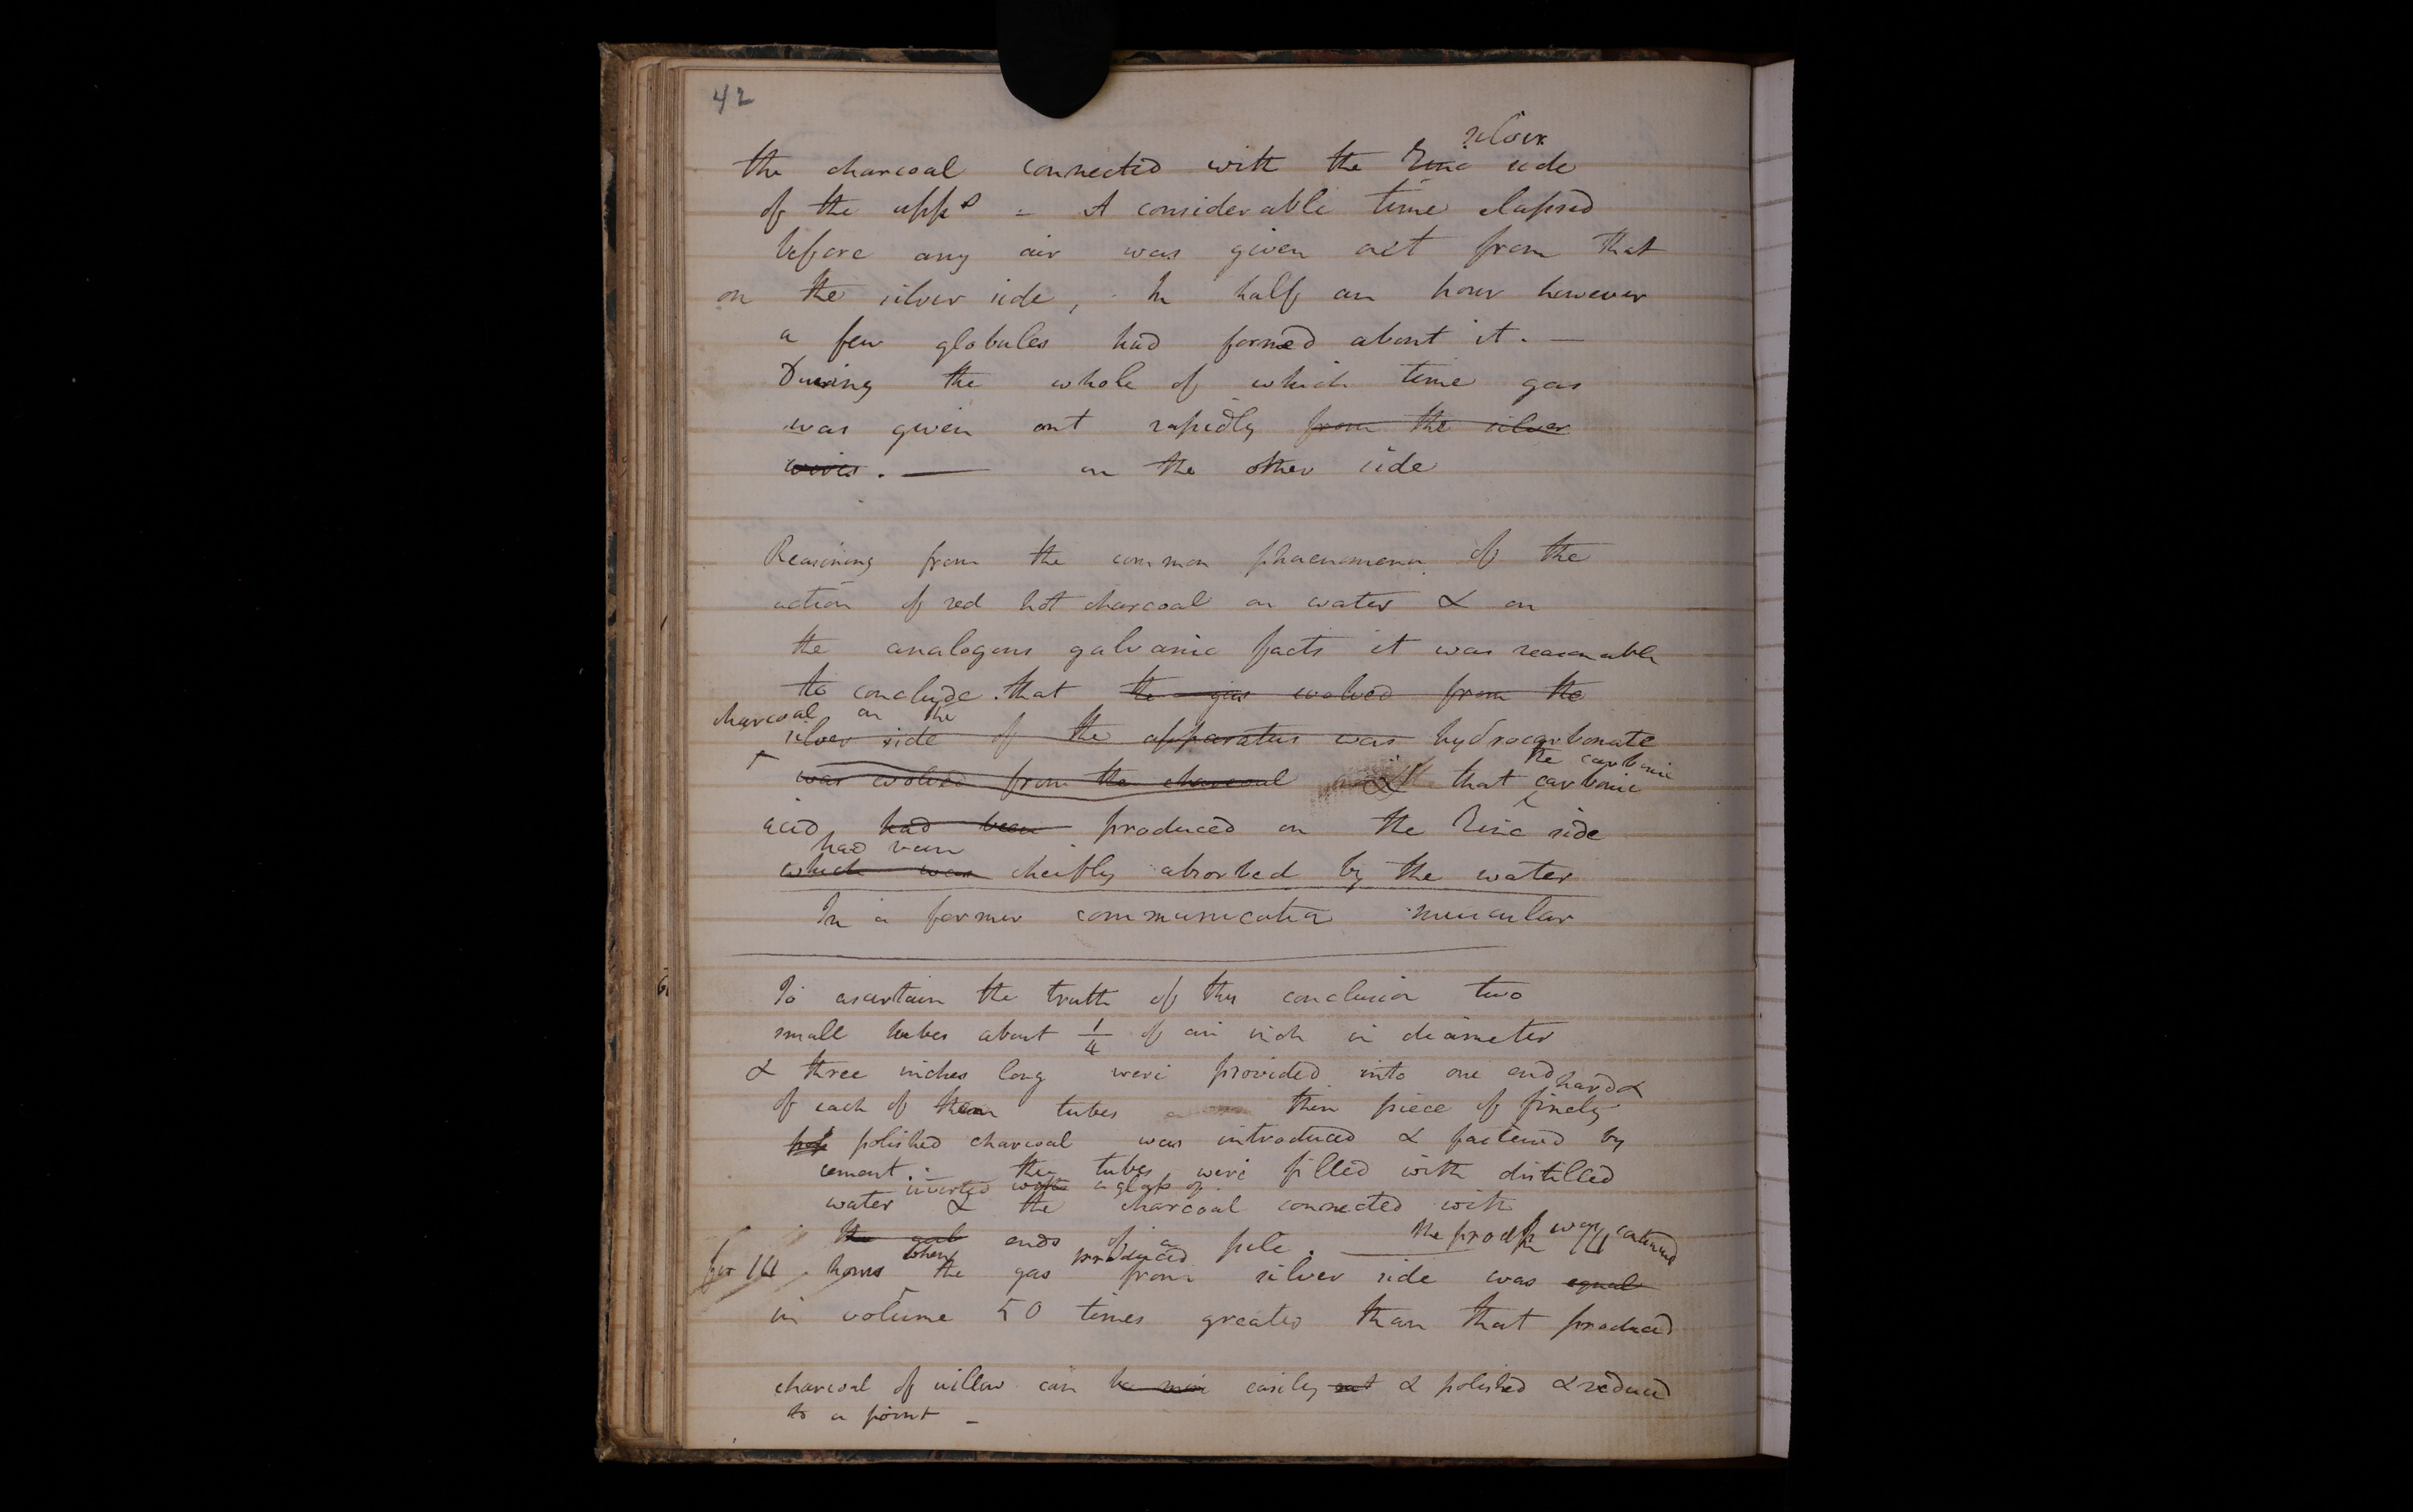 42
silver
the charcoal connected with the Zinc side
of the apps = A considerable time elapsed
before any air was given out from that
on the silver side, In half an hour however
a few globules had formed about it. —
During the whole of which time gas
was given out rapidly from the silver
wires. — on the other side
Reasoning from the common phaenomena of the
action of red hot charcoal on water & on
the analogous galvanic facts it was reasonable
to conclude that the gas evolved from the
charcoal on the
silver side of the apparatus was hydrocarbonate
the carbonic
was evolved from the charcoal & that carbonic
acid had been produced on the Zinc side
had been
which was cheifly absorbed by the water
In a former communication muscular
To ascertain the truth of this conclusion two
small tubes about 1/4 of an inch in diameter
& three inches long were provided into one end
hard &
of each of them tubes a thin piece of finely
polished charcoal was introduced & fastened by
cement. :– the tubes were filled with distilled
inverted a glass of
water & the charcoal connected with
the ends of a pile. — the process was continued
when produced
for 14 hours the gas from silver side was equal
in volume 50 times greater than that produced
charcoal of willow can be more easily cut & polished & reduced
to a point –